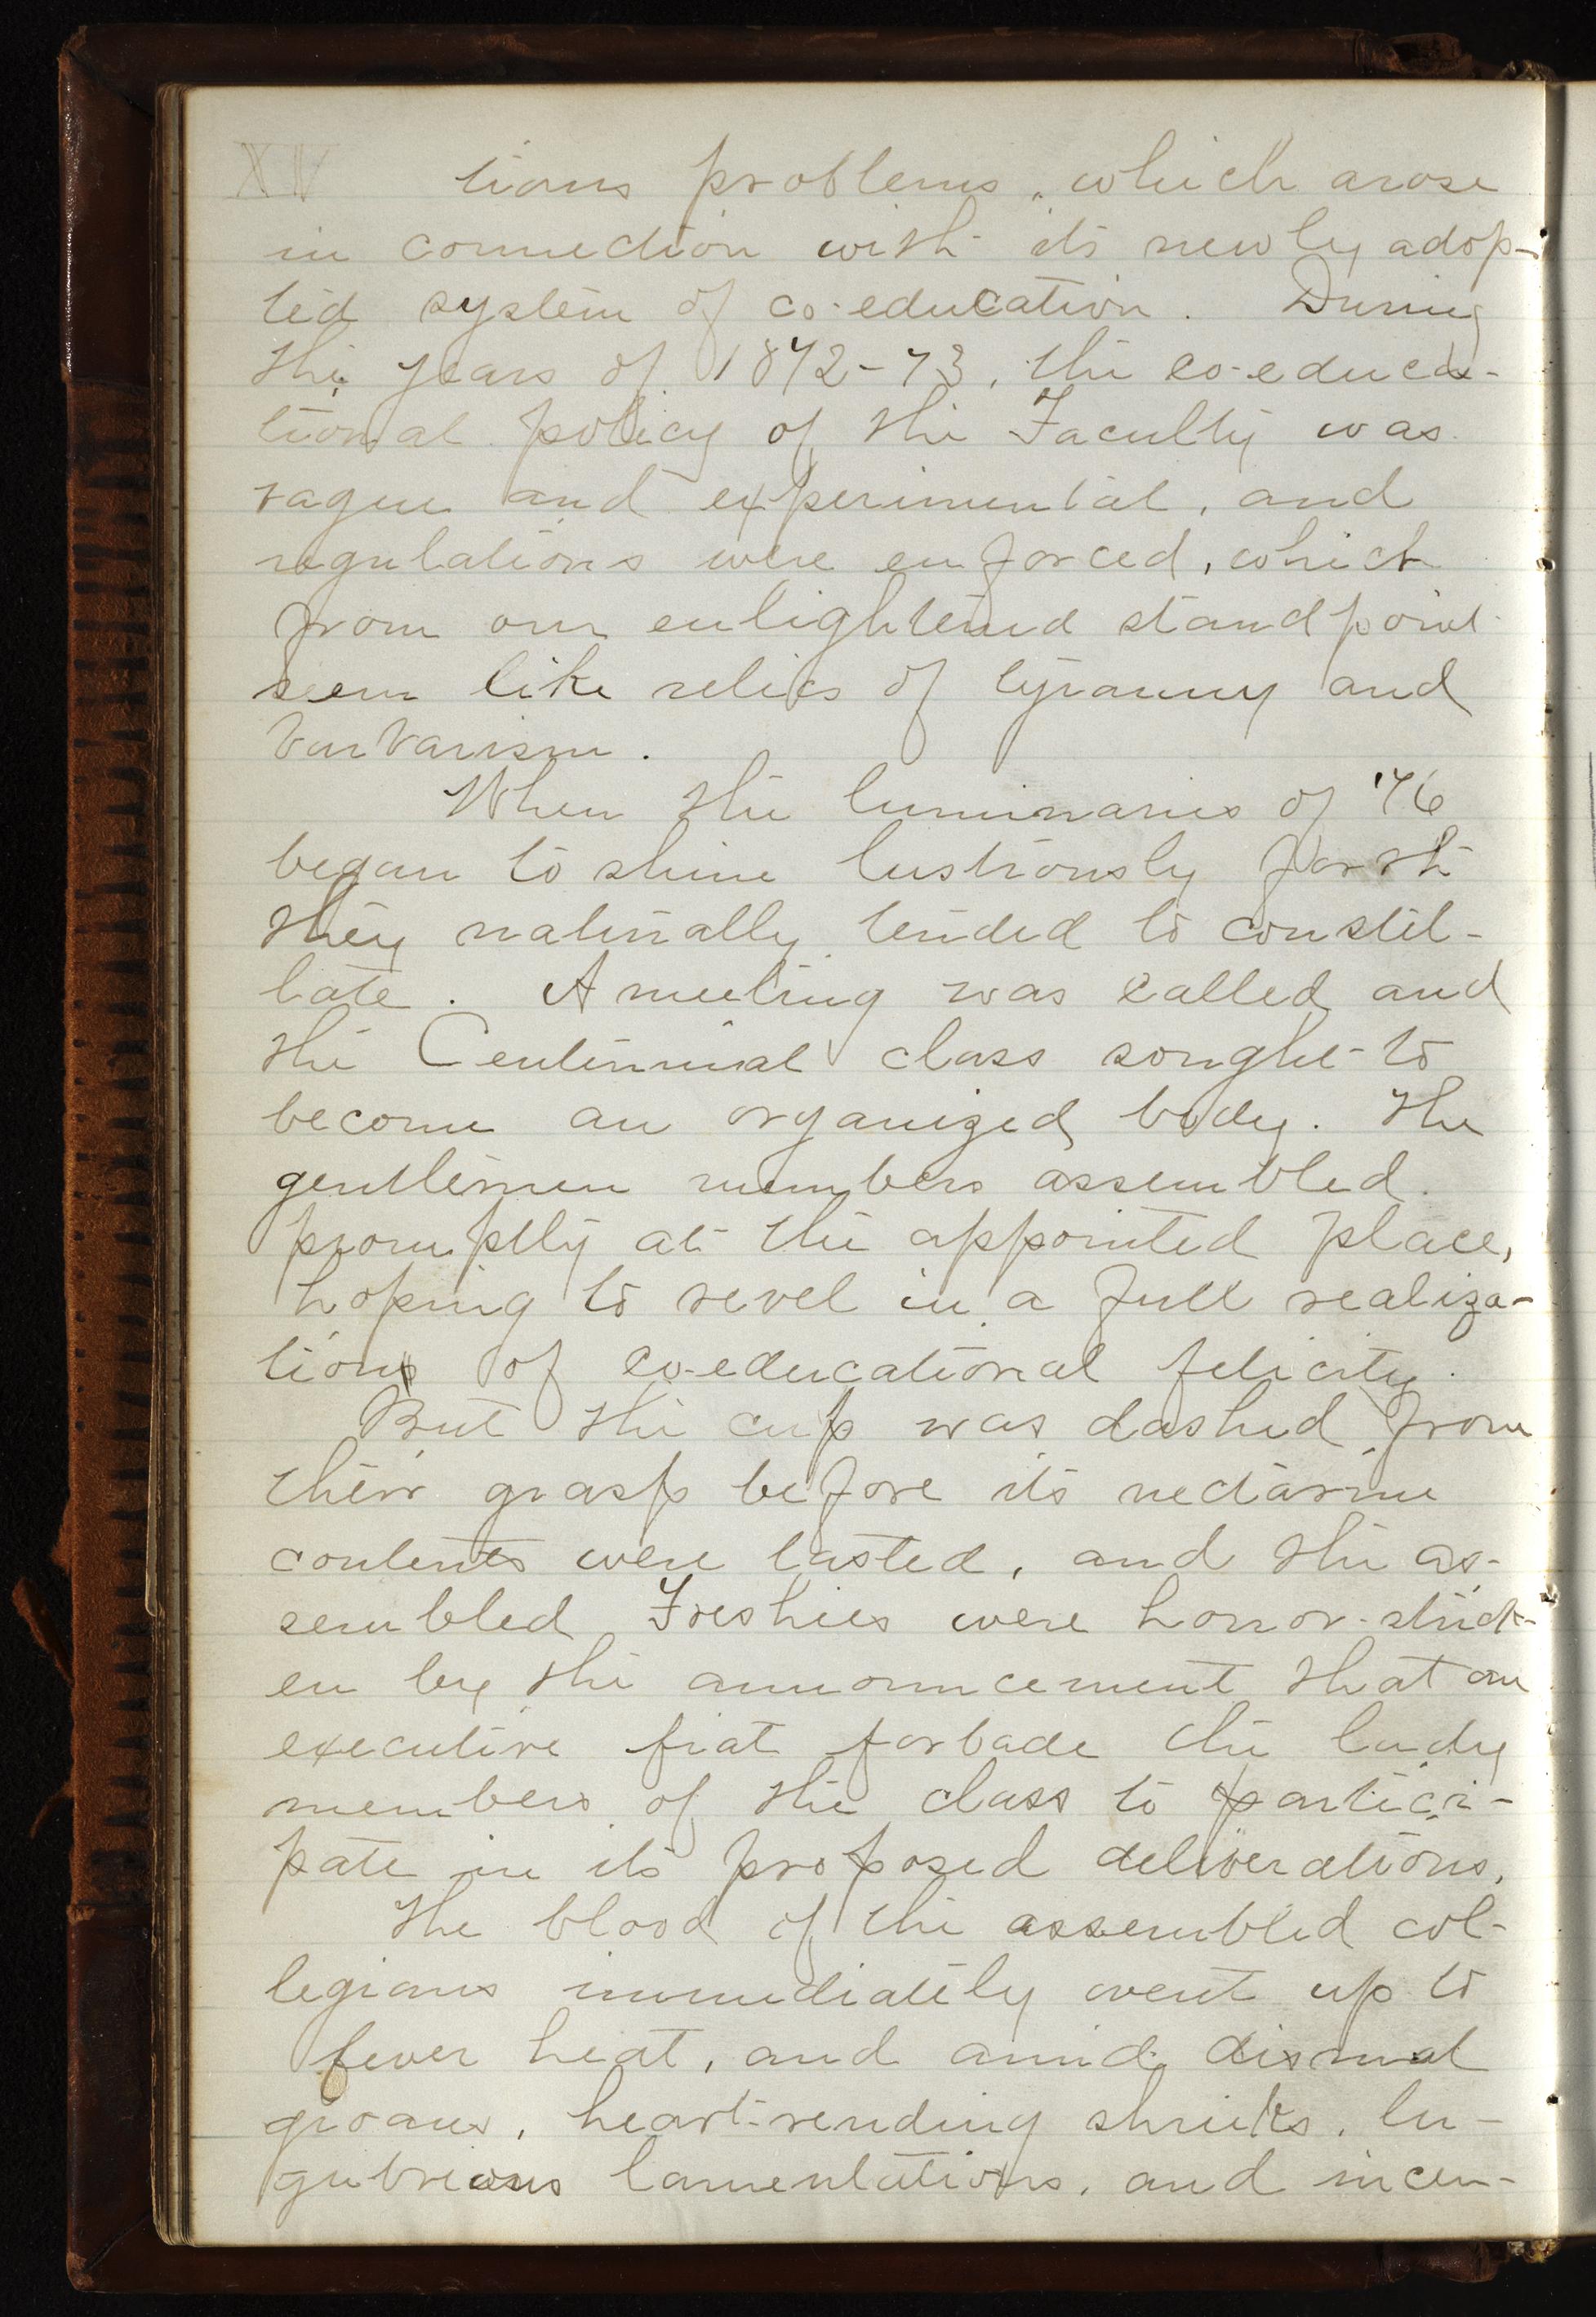 XIV tious problems, which arose
in connection with its newly adop-
ted system of co-education. During
the years of 1872-73, the co-educa-
tional policy of the Faculty was
vague and experimental, and
regulations were enforced, which
from our enlightened standpoint
seem like relics of tyranny and
barbarism.
When the luminaries of '76
began to shine lustriously forth
they naturally tended to constel-
late. A meeting was called and
the Centennial class sought to
become an organized body. The
gentlemen members assembled
promptly at the appointed place,
hoping to revel in a full realiza-
tion of co-educational felicity.
But the cup was dashed from
their grasp before its nectarine
contents were tasted, and the as-
sembled Freshies were horror-strick-
en by the announcement that an
executive fiat forbade the lady
members of the class to partici-
pate in its proposed deliberations.
The blood of the assembled col-
legians immediately went up to
fever heat, and amid dismal
groans, heart-rending shrieks, lu-
gubrious lamentations, and incen-